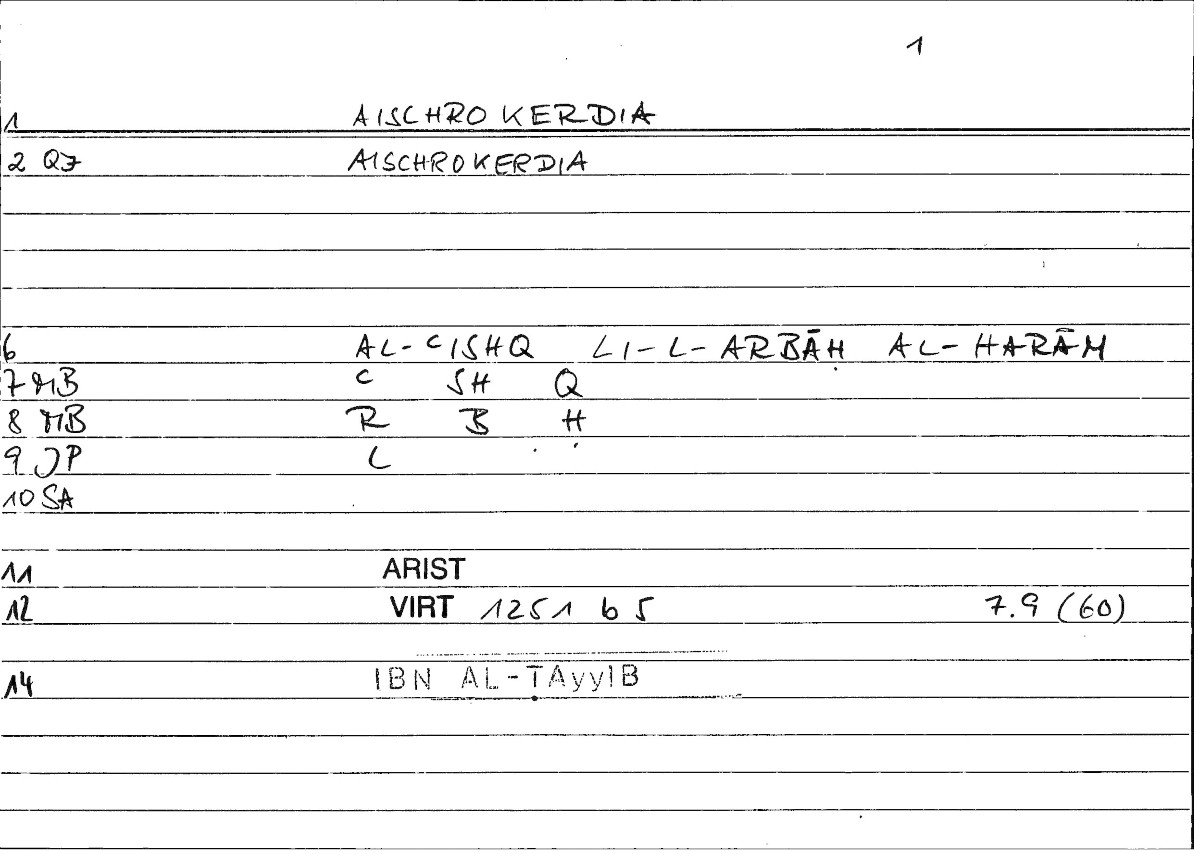 1
1 AISCHROKERDIA
2 QZ AISCHROKERDIA
6 AL-ᶜISHQ LI-L-ARBĀḤ AL-HARĀM
7 MB ᶜ SH Q
8 MB R B Ḥ
9 JP L
10 SA
11 ARIST
12 VIRT 1251 b 5 7.9 (60)
14 IBN AL-ṬAyyIB